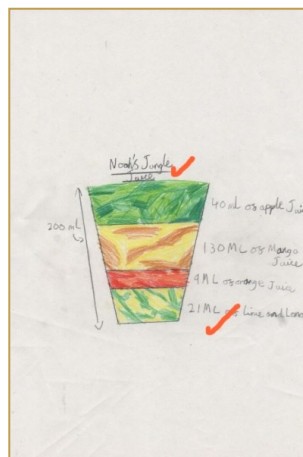 Noah's Jungle
Juice
200 mL
40mL of apple Jui
130ML of Mango
Juice
9ML of orange Juice
21ML of Lime and